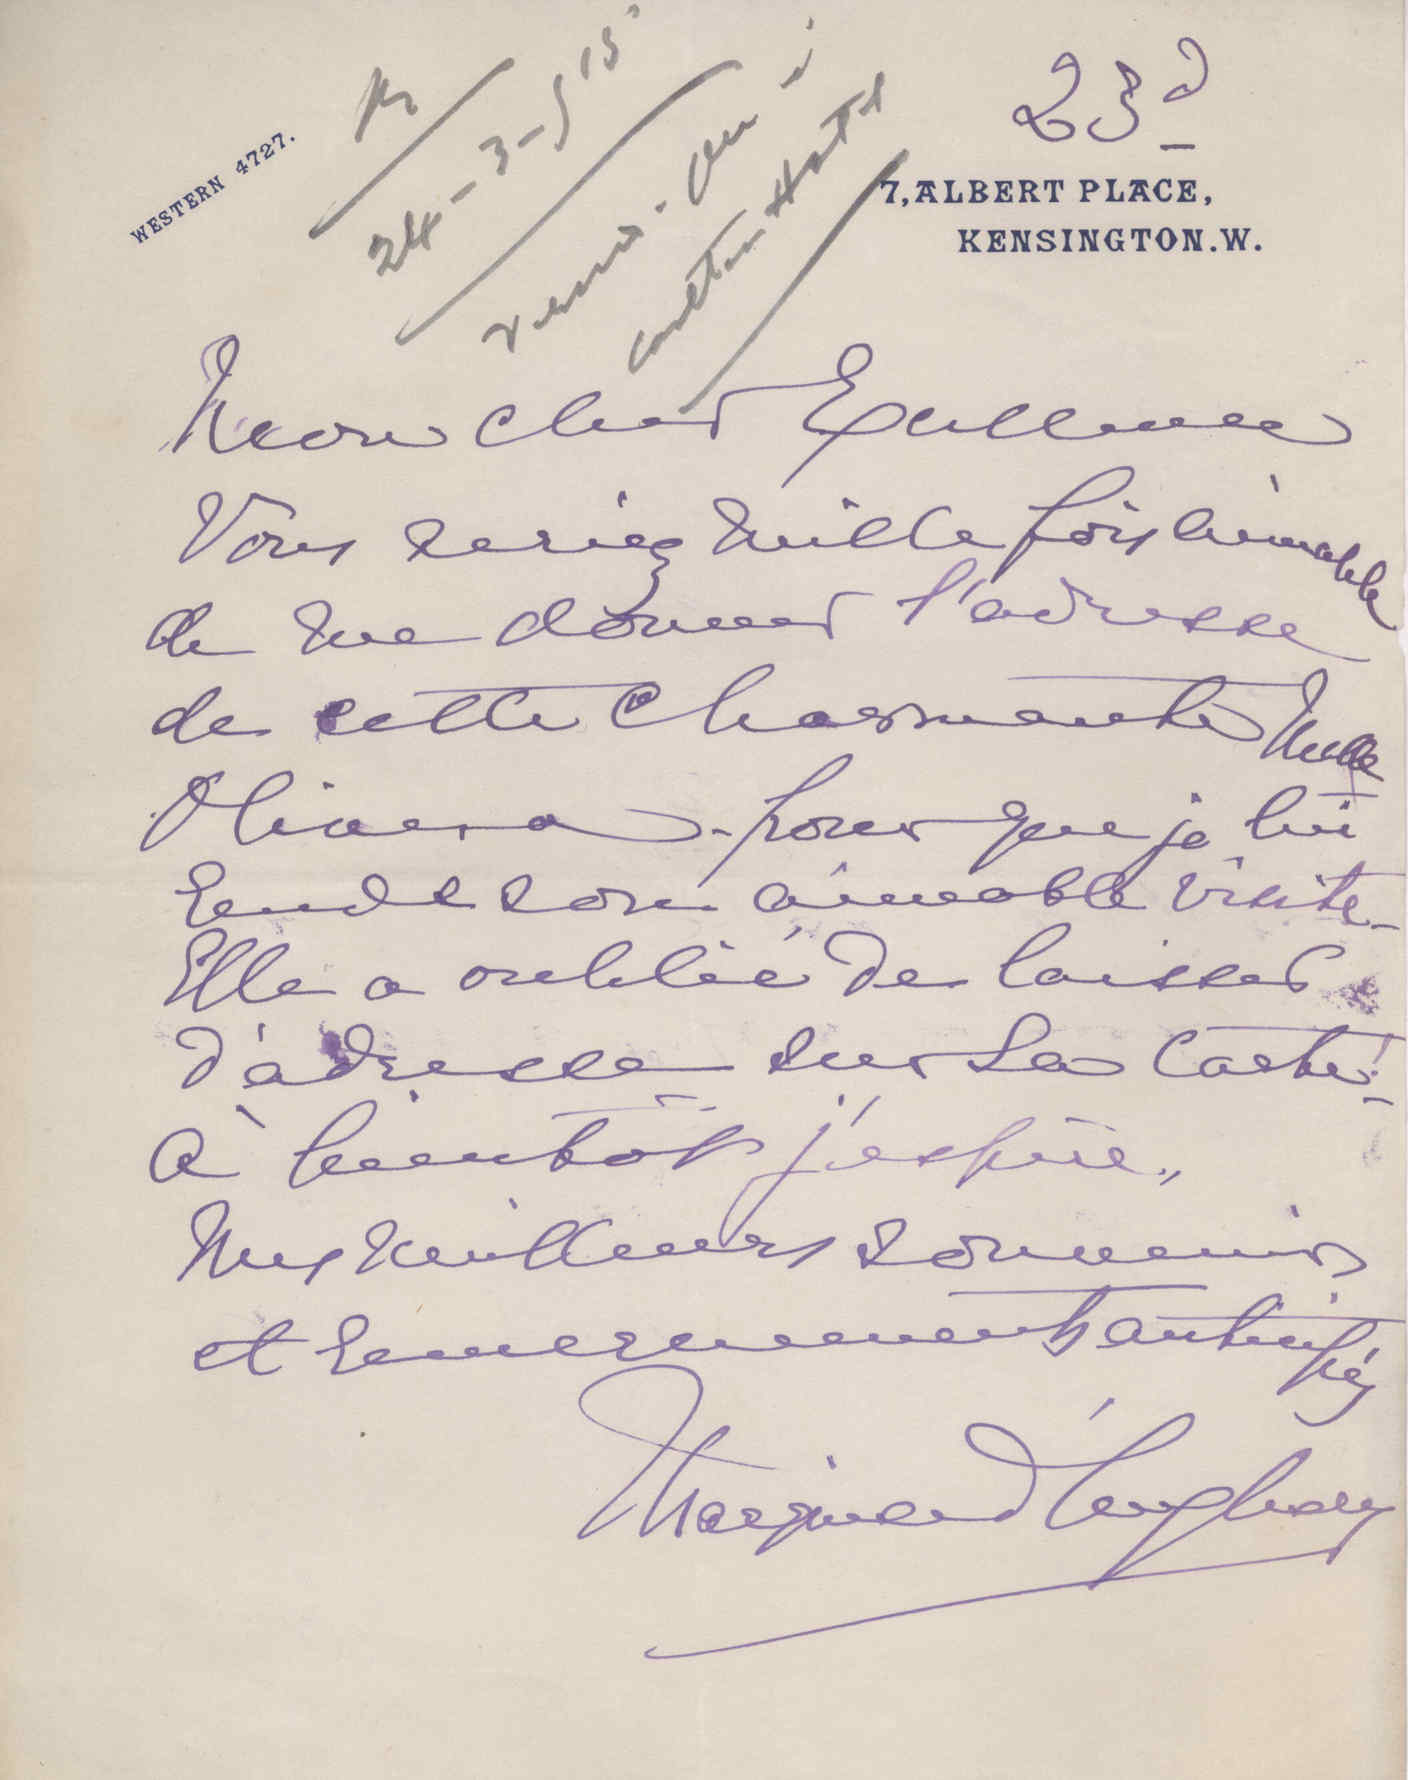 23d
WESTERN 4727.
7, ALBERT PLACE,
KENSINGTON. W.
R
24-3-915
Carlton Hotel
Mon cher
Vous seriez mille fois aimable
de me donner l'adresse
de cette charmante Mlle
Olivera - pour que je lui
rende son aimable visite -
Elle a oublié de laisser
d'adresse sur sa carte! -
à bientôt j'espère,
Mes meilleurs souvenirs
et remerciements anticipés